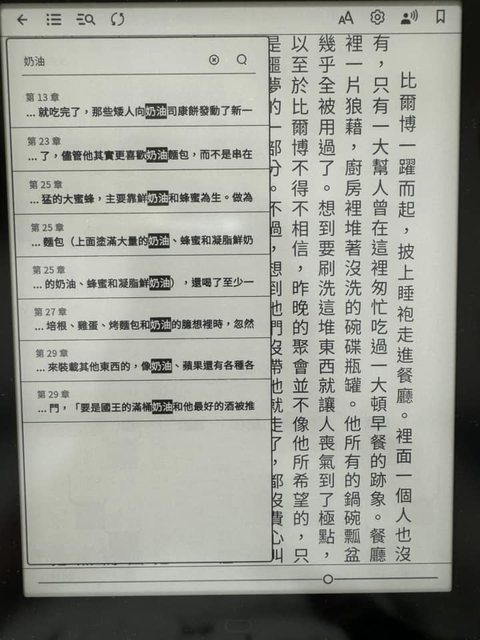 奶油
第 13 章
... 就吃完了，那些矮人向奶油司康餅發動了新一
第 23 章
... 了，儘管他其實更喜歡奶油麵包，而不是串在
第 25 章
... 猛的大蜜蜂，主要靠鮮奶油和蜂蜜為生。做為
第 25 章
... 麵包（上面塗滿大量的奶油、蜂蜜和凝脂鮮奶
第 25 章
... 的奶油、蜂蜜和凝脂鮮奶油），還喝了至少一
第 27 章
... 培根、雞蛋、烤麵包和奶油的臆想裡時，忽然
第 29 章
... 來裝載其他東西的，像奶油、蘋果還有各種各
第 29 章
... 門，「要是國王的滿桶奶油和他最好的酒被推
比爾博一躍而起，披上睡袍走進餐廳。裡面一個人也沒
有，只有一大幫人曾在這裡匆忙吃過一大頓早餐的跡象。餐廳
裡一片狼藉，廚房裡堆著沒洗的碗碟瓶罐。他所有的鍋碗瓢盆
幾乎全被用過了。想到要刷洗這堆東西就讓人喪氣到了極點，
以至於比爾博不得不相信，昨晚的聚會並不像他所希望的，只
是噩夢的一部分。不過，想到他們沒帶他就走了，都沒費心叫